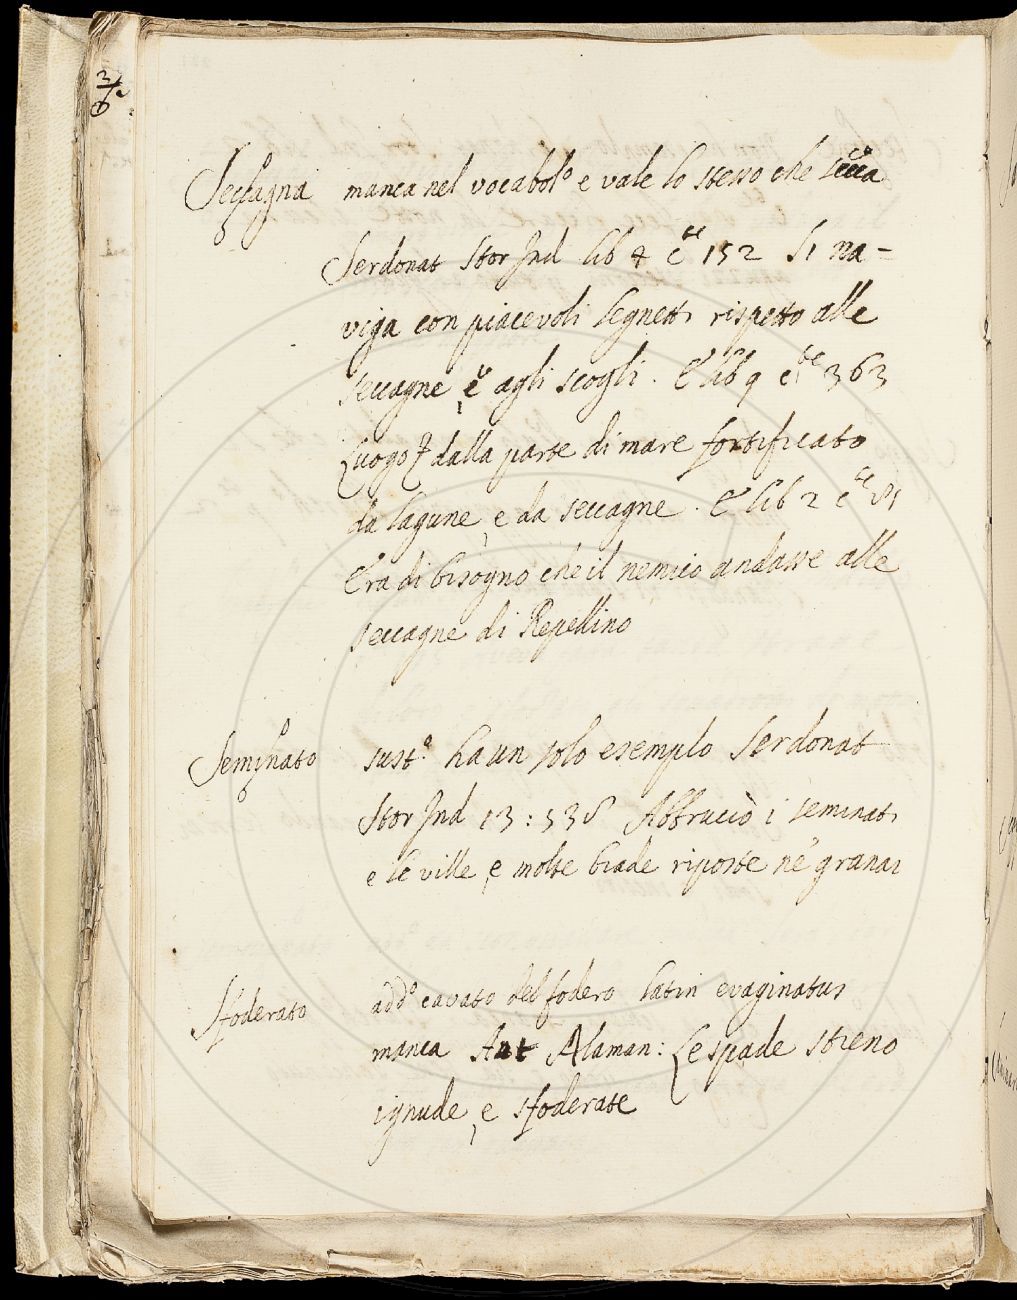 Seccagna manca nel vocabol.º e vale lo stesso che secca
Serdonat Stor Ind lib 4 c.te 152 Si na-
viga con piacevoli legnetti rispetto alle
seccagne, e agli scogli. E lib 9 c.te 363
Luogo dalla parte di mare fortificato
da lagune, e da seccagne. E lib 2 c.te 81
Era di bisogno che il nemico andasse alle
seccagne di Repellino
Seminato sust.º ha un solo esemplo Serdonat
Stor Ind 13:536 Abbruciò i seminati
e le ville, e molte biade riposte ne' granai
Sfoderato add.º cavato del fodero latin evaginatus
manca Ant Alaman: Le spade stieno
ignude, e sfoderate